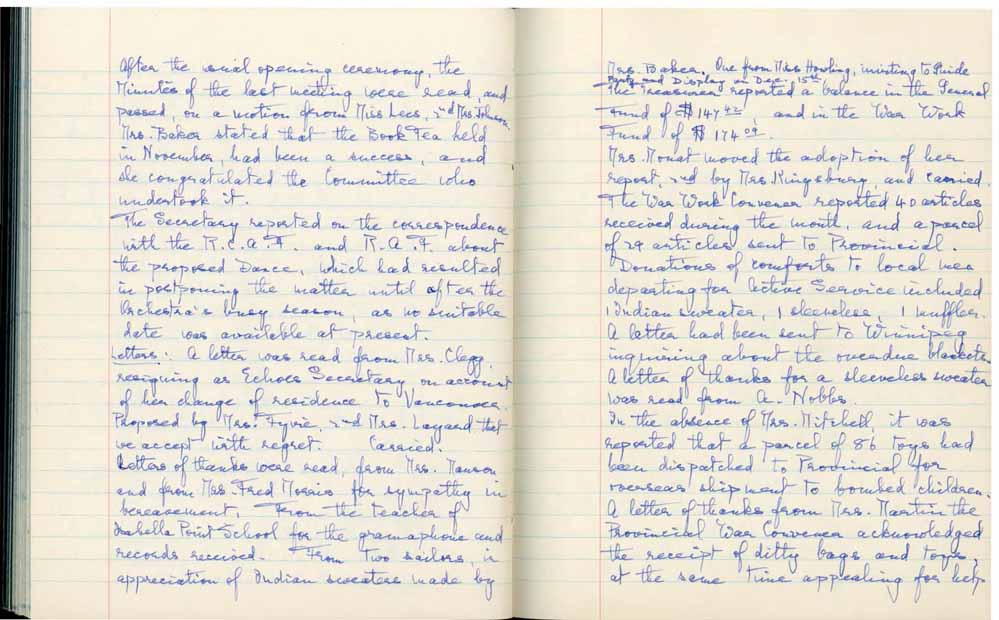 After the usual opening ceremony, the
Minutes of the last meeting were read, and
passed, on a motion from Miss Lees, 2nd Mrs. Johnson.
Mrs. Baker stated that the Book Tea held
in November, had been a success, and
she congratulated the Committee who
undertook it.
The Secretary reported on the correspondence
with the R.C.A.F. and R.A.F. about
the proposed Dance, which had resulted
in postponing the matter until after the
Orchestra's busy season, as no suitable
date was available at present.
Letters: A letter was read from Mrs. Clegg,
resigning as Echoes Secretary on account
of her change of residence to Vancouver.
Proposed by Mrs. Fyvie, 2nd Mrs. Layard that
we accept with regret. Carried.
Letters of thanks were read, from Mrs. Manson
and from Mrs. Fred Morris for sympathy in
bereavement. From the teacher of
Isabella Point School for the gramaphone and
records received. From two sailors, in
appreciation of Indian sweaters made by
Mrs. Baker. One from Miss Howling, inviting to Guide
Party and Display on Dec. 15th
The Treasurer reported a balance in the General
Fund of $147.42, and in the War Work
Fund of $174.09.
Mrs. Mouat moved the adoption of her
report, 2nd by Mrs. Kingsbury, and carried.
The War Work Convener reported 40 articles
received during the month, and a parcel
of 29 articles sent to Provincial.
Donations of comforts to local men
departing for Active Service included
1 Indian sweater, 1 sleeveless, 1 muffler.
A letter had been sent to Winnipeg
inquiring about the overdue blankets.
A letter of thanks for a sleeveless sweater
was read from A. Nobbs.
In the absence of Mrs. Mitchell, it was
reported that a parcel of 86 toys had
been dispatched to Provincial for
overseas shipment to bombed children.
A letter of thanks from Mrs. Martin the
Provincial War Convener acknowledged
the receipt of ditty bags and toys,
at the same time appealing for help